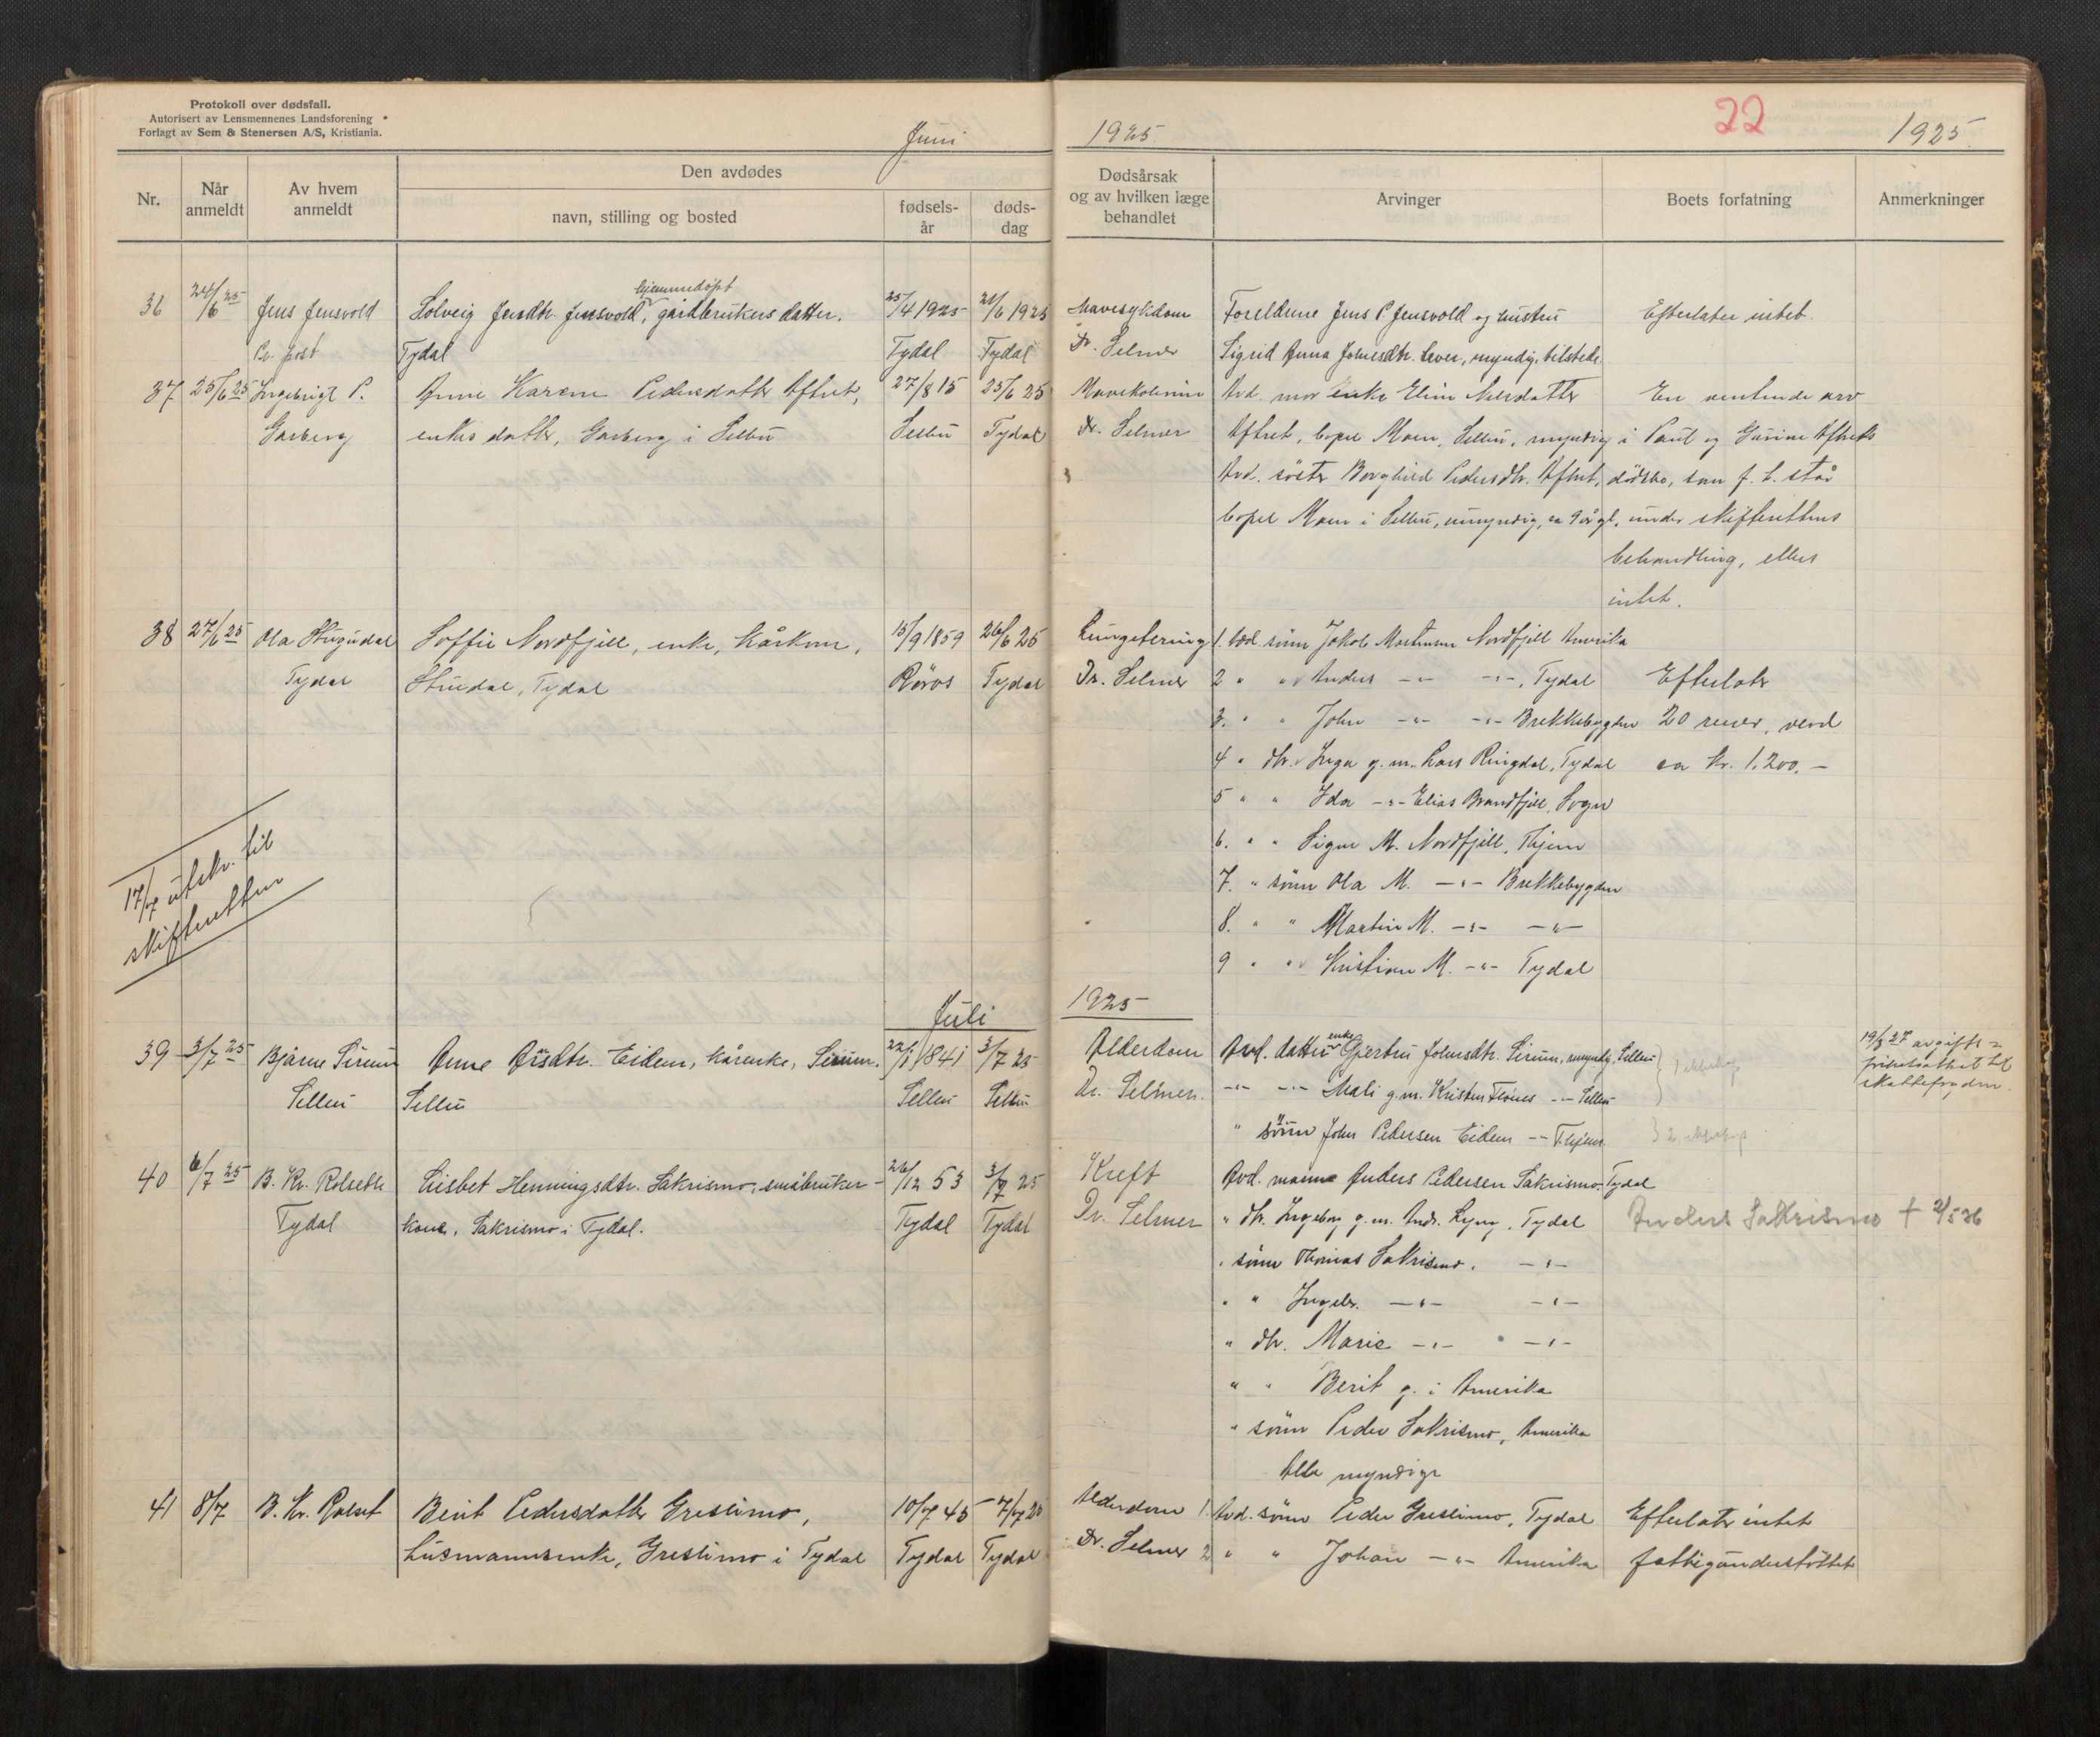 Protokoll over dødsfall.
Autorisert av Lensmennenes Landsforening
Forlagt av Sem & Stenersen A/S, Kristiania.
Juni 1925
22
1925
Nr.
Når anmeldt
Av hvem anmeldt
Den avdødes
navn, stilling og bosted
fødsels-år
døds-dag
Dødsårsak og av hvilken læge behandlet
Arvinger
Boets forfatning
Anmerkninger
hjemmedöpt
36 24/6 25 Jens Jensvold Solveig Jensdtr. Jensvold, gårdbrukers datter. 25/4 1925 21/6 1925 Mavesykdom Foreldrene Jens P. Jensvold og hustru Efterlater intet.
Pr. post Tydal Tydal Tydal Dr. Selmer Sigrid Anna Johnsdtr. Løvøa, myndig, tilstede
37 25/6 25 Ingebrigt P. Anne Karen Pedersdatter Aftret, 27/8 15 25/6 25 Avd. mor enke Elin Nilsdatter En ventende arv
Garberg enkes datter, Garberg i Selbu Selbu Tydal Dr. Selmer Aftret, bopel Moen, Selbu, myndig i Paul og Gurine Aftrets
Avd. söster Borghild Pedersdtr. Aftret, dödsbo, som f. t. står
bopel Moen i Selbu, umyndig, ca 9 år gl. under skifterettens
behandling, ellers
intet.
38 27/6 25 Ola Stugudal Soffie Nordfjell, enke, kårkone, 15/9 1859 26/6 25 Lungetering 1. Avd. sönn Jakob Mortensen Nordfjell Amerika
Tydal Stuedal, Tydal Röros Tydal Dr. Selmer 2 " " Anders -"- -"-, Tydal Efterlater
3. " " John -"- -"- Brekkebygden 20 rener, verd
4 " dtr. Inga g.m. Lars Ringdal, Tydal ca kr. 1.200.-
5 " " Ida -"- Elias Brandfjell, Sogn
6. " " Signe M. Nordfjell, Thjem
7. " sönn Ola M. -"- Brekkebygden
8. " " Martin M. -"- -"-
9 " " Kristian M. -"- Tydal
17/7 utskr. til
skifteretten
Juli 1925
39 3/7 25 Bjarne Sirum Anne Olsdtr. Eidem, kårenke, Sirum. 22/1 1841 3/7 25 Alderdom Avd. datter enke Gjertru Johnsdtr. Sirum, myndig, Selbu 19/3 27 avgifts-
Selbu Selbu Selbu Selbu Dr. Selmer. -"- -"- Mali g.m. Kristen Flönes -"- Selbu frihetsattest til
skattefogden.
" sönn John Pedersen Eidem -"- Thjem.
40 6/7 25 B. Kr. Rolseth Lisbet Henningsdtr. Sakrismo, småbruker- 26/12 53 3/7 25 Kreft Avd. mann Anders Pedersen Sakrismo. Tydal
Tydal kone, Sakrismo i Tydal. Tydal Tydal Dr. Selmer " dtr. Ingeborg g.m. Andr. Lyng, Tydal Anders Sakrismo † 2/5 36
" sönn Thomas Sakrismo. -"-
" " Ingebr. -"- -"-
" dtr. Marie -"- -"-
" " Berit g. i Amerika
" sönn Peder Sakrismo, Amerika
Alle myndige
41 8/7 B. Kr. Rolset Berit Pedersdatter Greslimo, 10/7 45 7/7 25 Alderdom 1. Avd. sönn Peder Greslimo, Tydal Efterlater intet
husmannsenke, Greslimo i Tydal Tydal Tydal Dr. Selmer 2 " " Johan -"- Amerika fattigunderstöttet